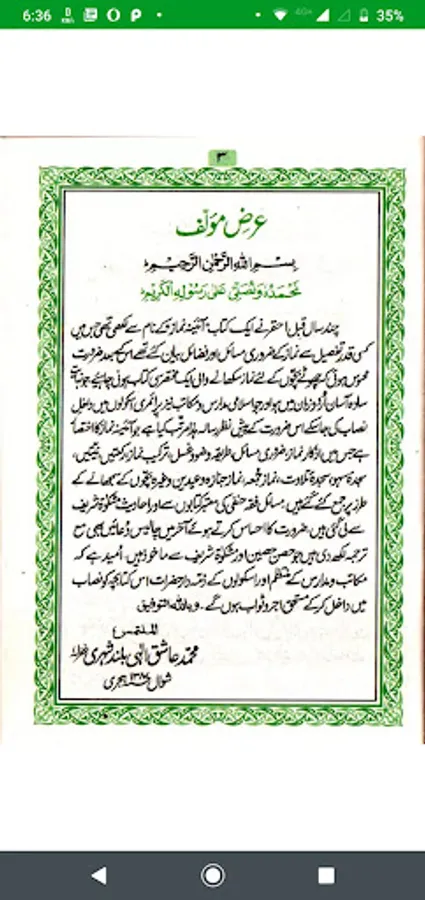 6:36
35%
۳
عرضِ مؤلّف
بِسْمِ اللهِ الرَّحْمٰنِ الرَّحِيْمِ
نَحْمَدُهٗ وَنُصَلِّيْ عَلٰى رَسُوْلِهِ الْكَرِيْمِ
چند سال قبل احقر نے ایک کتاب آئینۂ نماز کے نام سے لکھی تھی جس میں
کسی قدر تفصیل سے نماز کے ضروری مسائل اور فضائل بیان کئے تھے اسکے بعد ضرورت
محسوس ہوئی کہ چھوٹے بچوں کے لئے نماز سکھانے والی ایک مختصر سی کتاب ہونی چاہیے جو
سادہ آسان اُردو زبان میں ہو اور جو اسلامی مدارس و مکاتب نیز پرائمری اسکولوں میں داخلِ
نصاب کی جا سکے اس ضرورت کے پیش نظر رسالہ ہٰذا مرتب کیا ہے جو آئینۂ نماز کا اختصار
ہے جس میں اذکارِ نماز، ضروری مسائل، طریقۂ وضو و غسل، ترکیبِ نماز، رکعتیں، نیتیں،
سجدۂ سہو، سجدۂ تلاوت، نمازِ جمعہ، نمازِ جنازہ و عیدین وغیرہ بچوں کے سمجھانے کے
طرز پر جمع کئے گئے ہیں۔ مسائل فقہ حنفی کی معتبر کتابوں سے اور احادیث مشکوٰۃ شریف
سے لی گئی ہیں ضرورت کا احساس کرتے ہوئے آخر میں چالیس دُعائیں بھی مع
ترجمہ لکھ دی ہیں جو حصن حصین اور مشکوٰۃ شریف سے ماخوذ ہیں۔ اُمید ہے کہ
مکاتب و مدارس کے منتظم اور اسکولوں کے ذمّہ دار حضرات اس کتابچہ کو نصاب
میں داخل کرکے مستحق اجر و ثواب ہوں گے۔ وباللہ التوفیق
الملتمس
محمد عاشق الٰہی بلند شہری
شوال ہجری